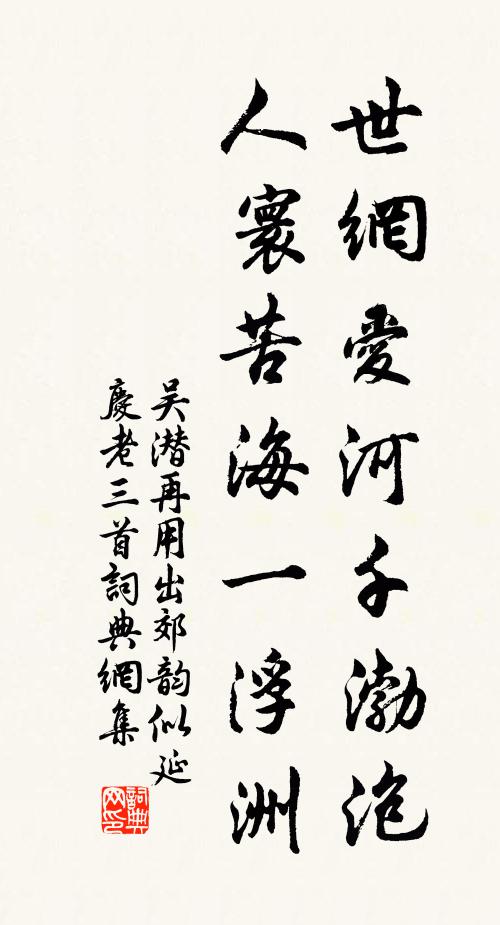 世網愛河千渤泡
人寰苦海一浮洲
吴潜再用出郊韵似延
慶老三首詞典網集
詞典網印